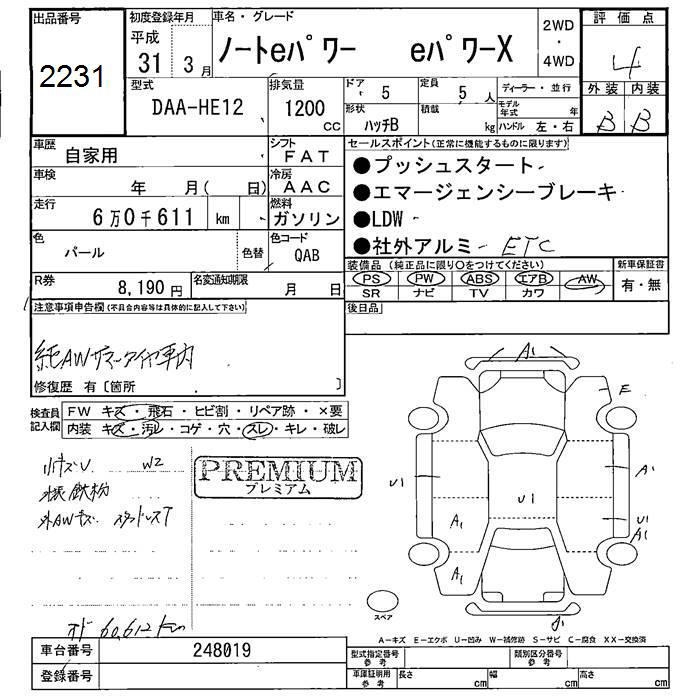 出品番号
2231
初度登録年月
平成
31 3月
車名・グレード
ノートeパワー eパワーX
2WD
・
4WD
評価点
4
外装 内装
B B
型式
DAA-HE12
排気量
1200
cc
ドア
5
定員
5人
形状
ハッチB
積載
kg
ディーラー・並行
モデル年式 年
ハンドル 左・右
車歴
自家用
シフト
FAT
車検
年 月( 日)
冷房
AAC
走行
6万0千611 km
燃料
ガソリン
色
パール
色替
色コード
QAB
R券
8,190円
名変通知期限
月 日
セールスポイント(正常に機能するものに限ります)
●プッシュスタート
●エマージェンシーブレーキ
●LDW
●社外アルミ ETC
装備品(純正品に限り○をつけてください)
PS PW ABS エアB AW
SR ナビ TV カワ
新車保証書
有・無
後日品
注意事項申告欄(不具合内容等は具体的に記入して下さい)
純AWサマータイヤ車内
修復歴 有〔箇所 〕
検査員記入欄
FW キズ・飛石・ヒビ割・リペア跡・×要
内装 キズ・汚レ・コゲ・穴・スレ・キレ・破レ
小キズU W2
鉄粉
外AWキズ スタッドレスT
PREMIUM
プレミアム
オド 60,612km
A1
E
U1
A1
U1
U1
A1
A1
A1
スペア
A-キズ E-エクボ U-凹み W-補修跡 S-サビ C-腐食 XX-交換済
車台番号
248019
登録番号
型式指定番号
参考
類別区分番号
参考
車庫証明用
参考
長さ cm
幅 cm
高さ cm